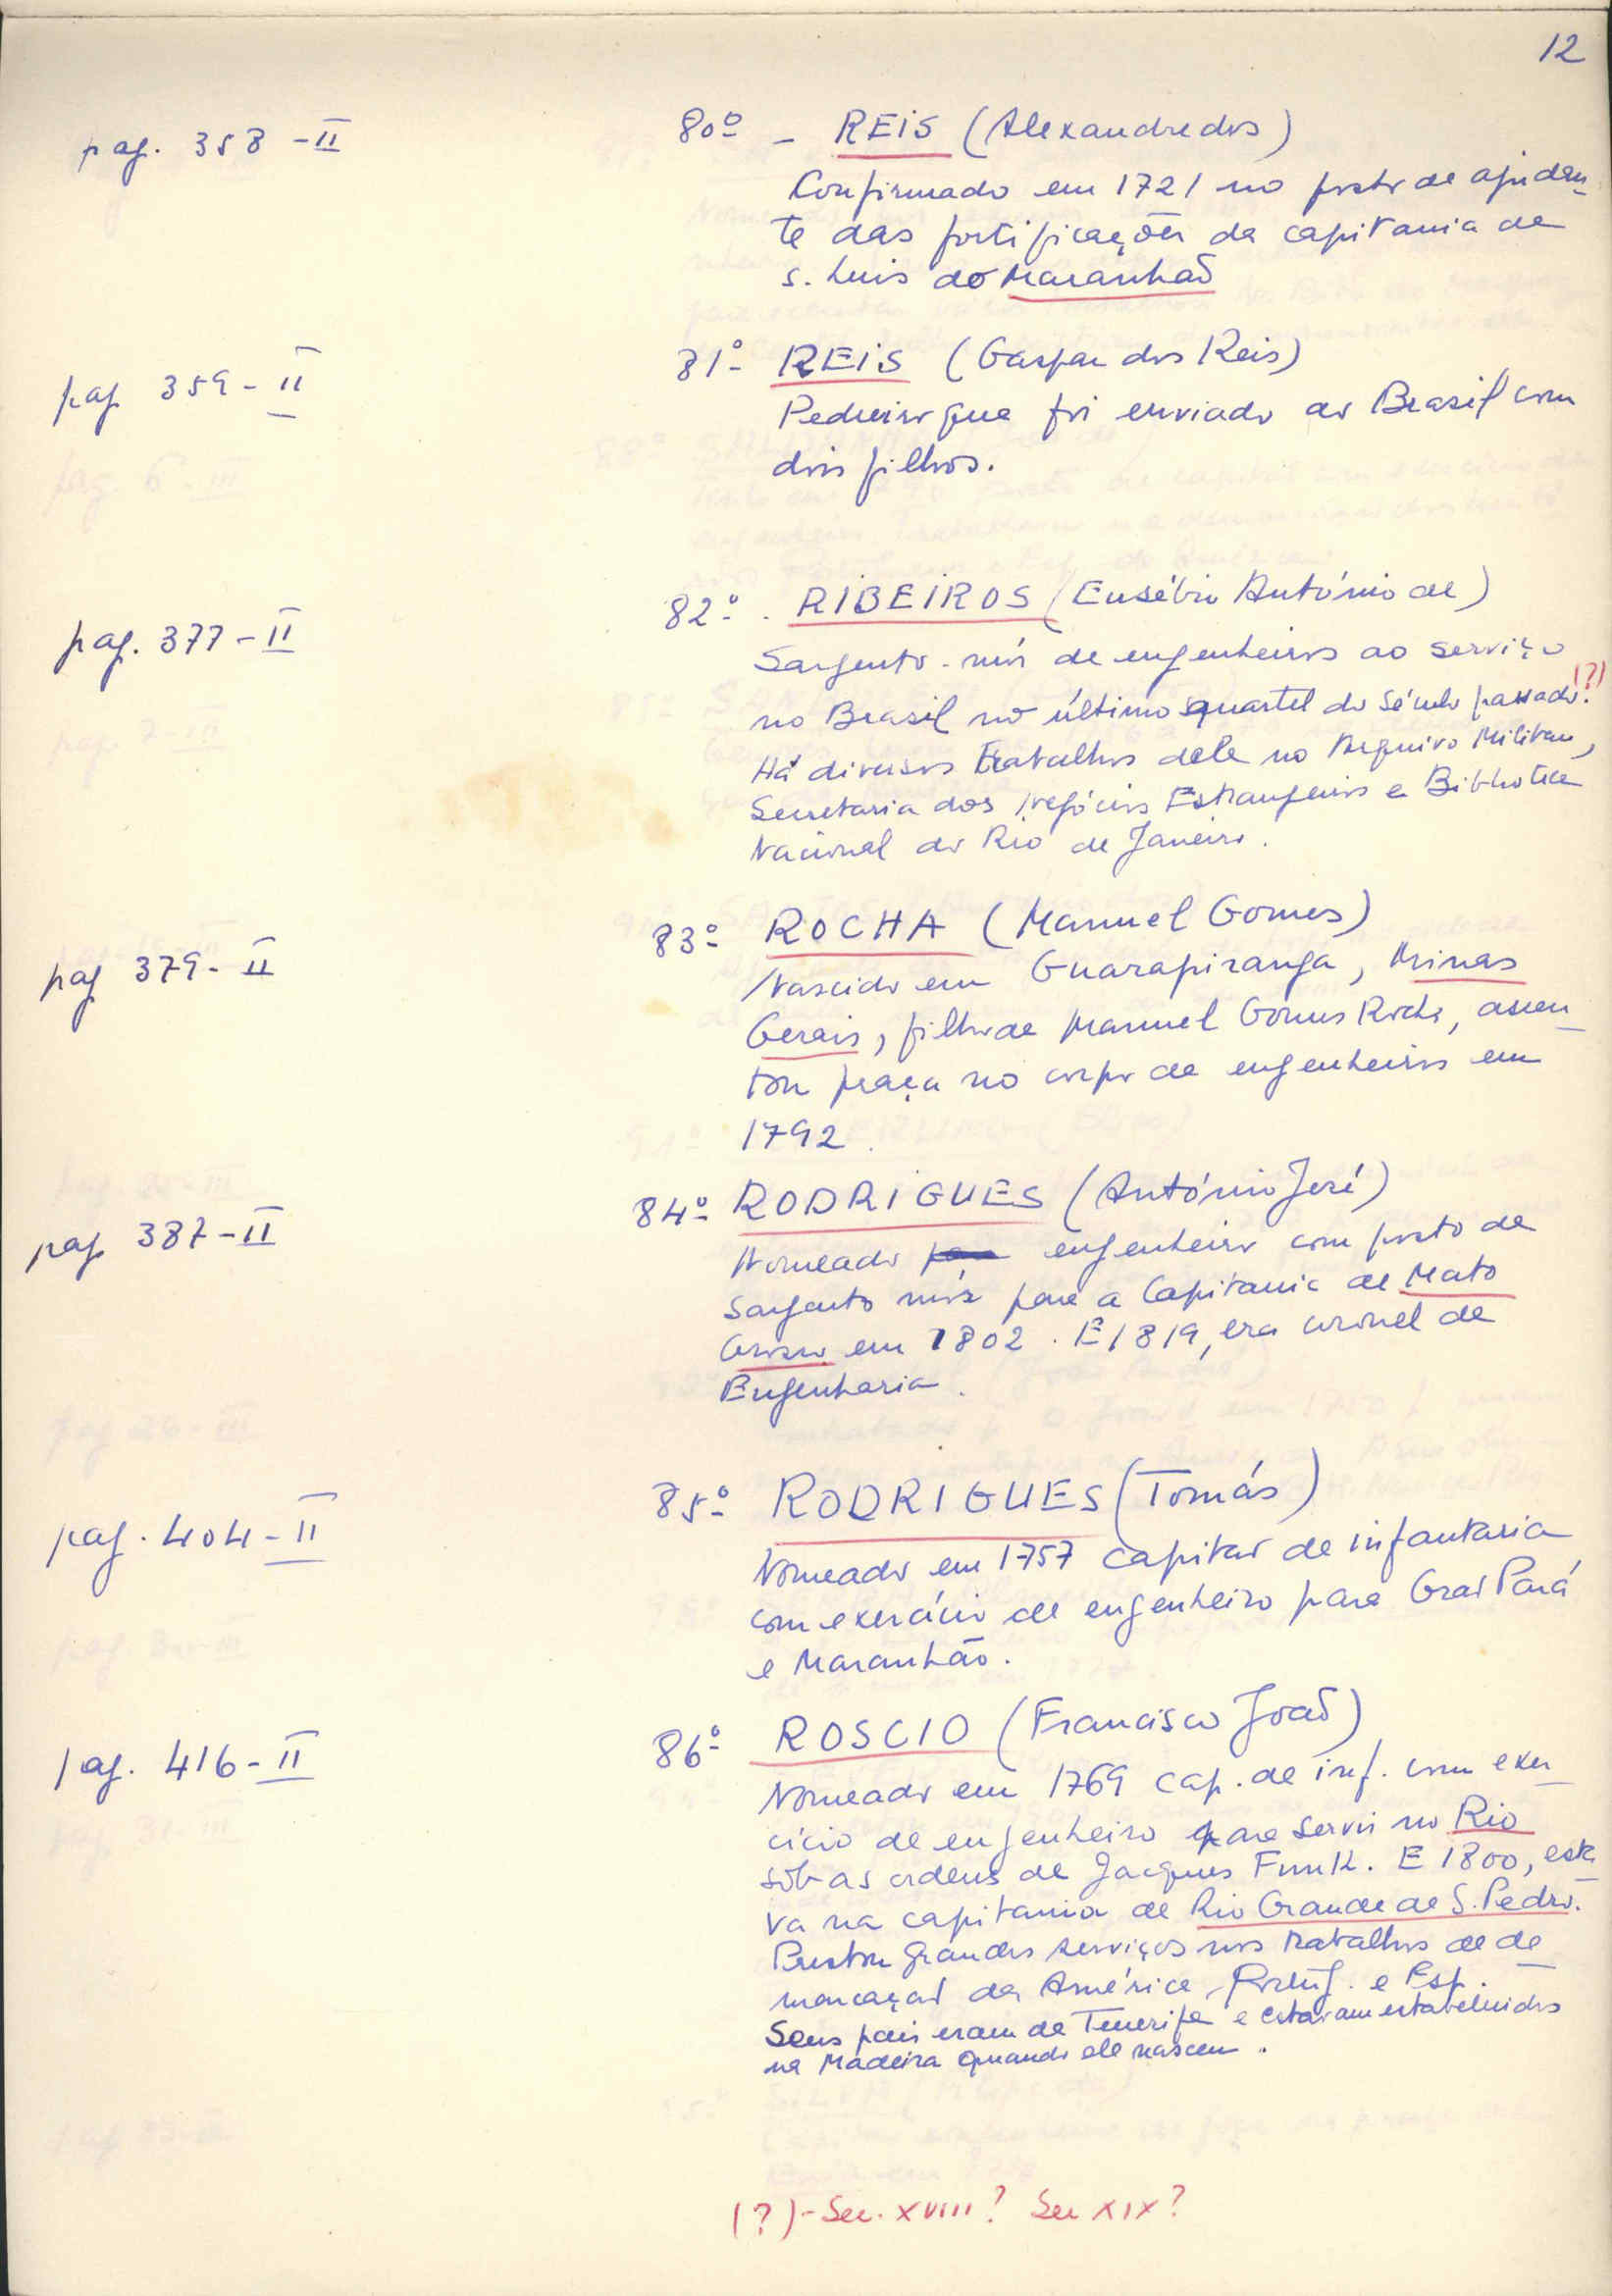 12
pag. 358 - II
80º - REIS (Alexandre dos)
Confirmado em 1721 no posto de ajudan-
te das fortificações da capitania de
S. Luis do Maranhão
pag 359 - II
81º- REIS (Gaspar dos Reis)
Pedreiro que foi enviado ao Brasil com
dois filhos.
pag. 377 - II
82º- . RIBEIROS (Eusébio António de)
Sargento-mór de engenheiros ao serviço
no Brasil no último quartel do século passado. (?)
Há diversos trabalhos dele no Arquivo Militar,
Secretaria dos Negócios Estrangeiros e Biblioteca
Nacional do Rio de Janeiro.
pag 379 - II
83º- ROCHA (Manuel Gomes)
Nascido em Guarapiranga, Minas
Gerais, filho de Manuel Gomes Rocha, assen-
tou praça no corpo de engenheiros em
1792.
pag 387 - II
84º- RODRIGUES (António José)
Nomeado engenheiro com posto de
Sargento mór para a Capitania de Mato
Grosso em 1802. E 1819, era coronel de
Engenharia.
pag. 404 - II
85º- RODRIGUES (Tomás)
Nomeado em 1757 capitão de infantaria
com exercício de engenheiro para Grão Pará
e Maranhão.
pag. 416 - II
86º- ROSCIO (Francisco João)
Nomeado em 1769 cap. de inf. com exer-
cício de engenheiro para servir no Rio
sob as ordens de Jacques Funk. E 1800, esta-
va na capitania de Rio Grande de S. Pedro.
Prestou grandes serviços nos trabalhos de de-
marcação da América Portug. e Esp.
Seus pais eram de Tenerife e estavam estabelecidos
na Madeira quando ele nasceu.
(?) - Sec. XVIII? Sec XIX?